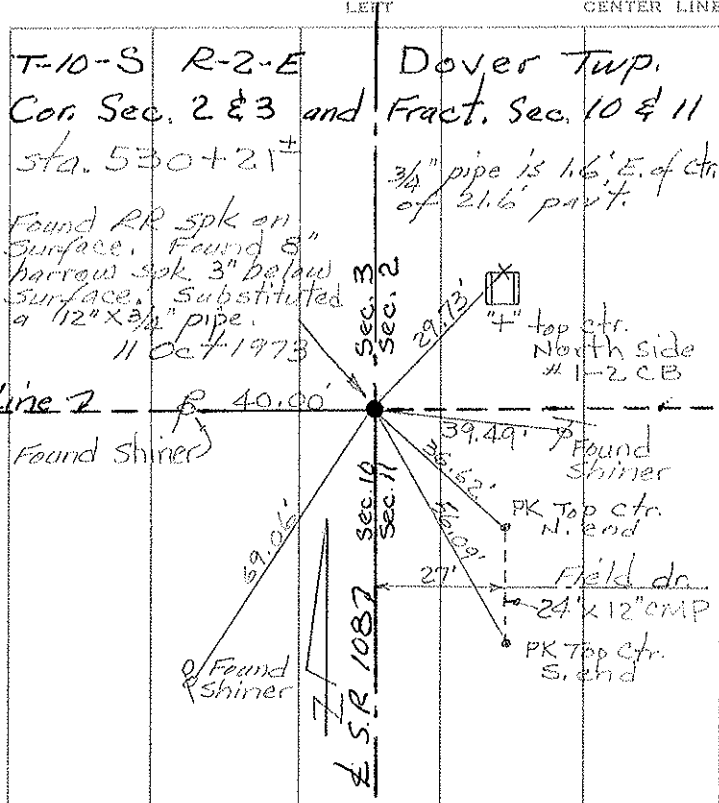 LEFT
CENTER LINE
T-10-S R-2-E
Dover Twp.
Cor. Sec. 2 & 3 and Fract. Sec. 10 & 11
sta. 530+21±
3/4" pipe is 1.6' E. of ctr.
of 21.6' pav't.
Found RR spk on
Surface. Found 8"
harrow spk 3" below
Surface. Substituted
a 12" X 3/4" pipe.
11 Oct 1973
Sec. 3
Sec. 2
29.73'
"+" top ctr.
North side
# 1-2 CB
Line 7
40.00'
Found Shiner
39.49'
Found
Shiner
Sec. 10
Sec. 11
PK Top ctr.
N. end
56.09'
69.06'
27'
Field dr.
24' x 12" CMP
PK Top Ctr.
S. end
Found
Shiner
℄ S.R. 1087